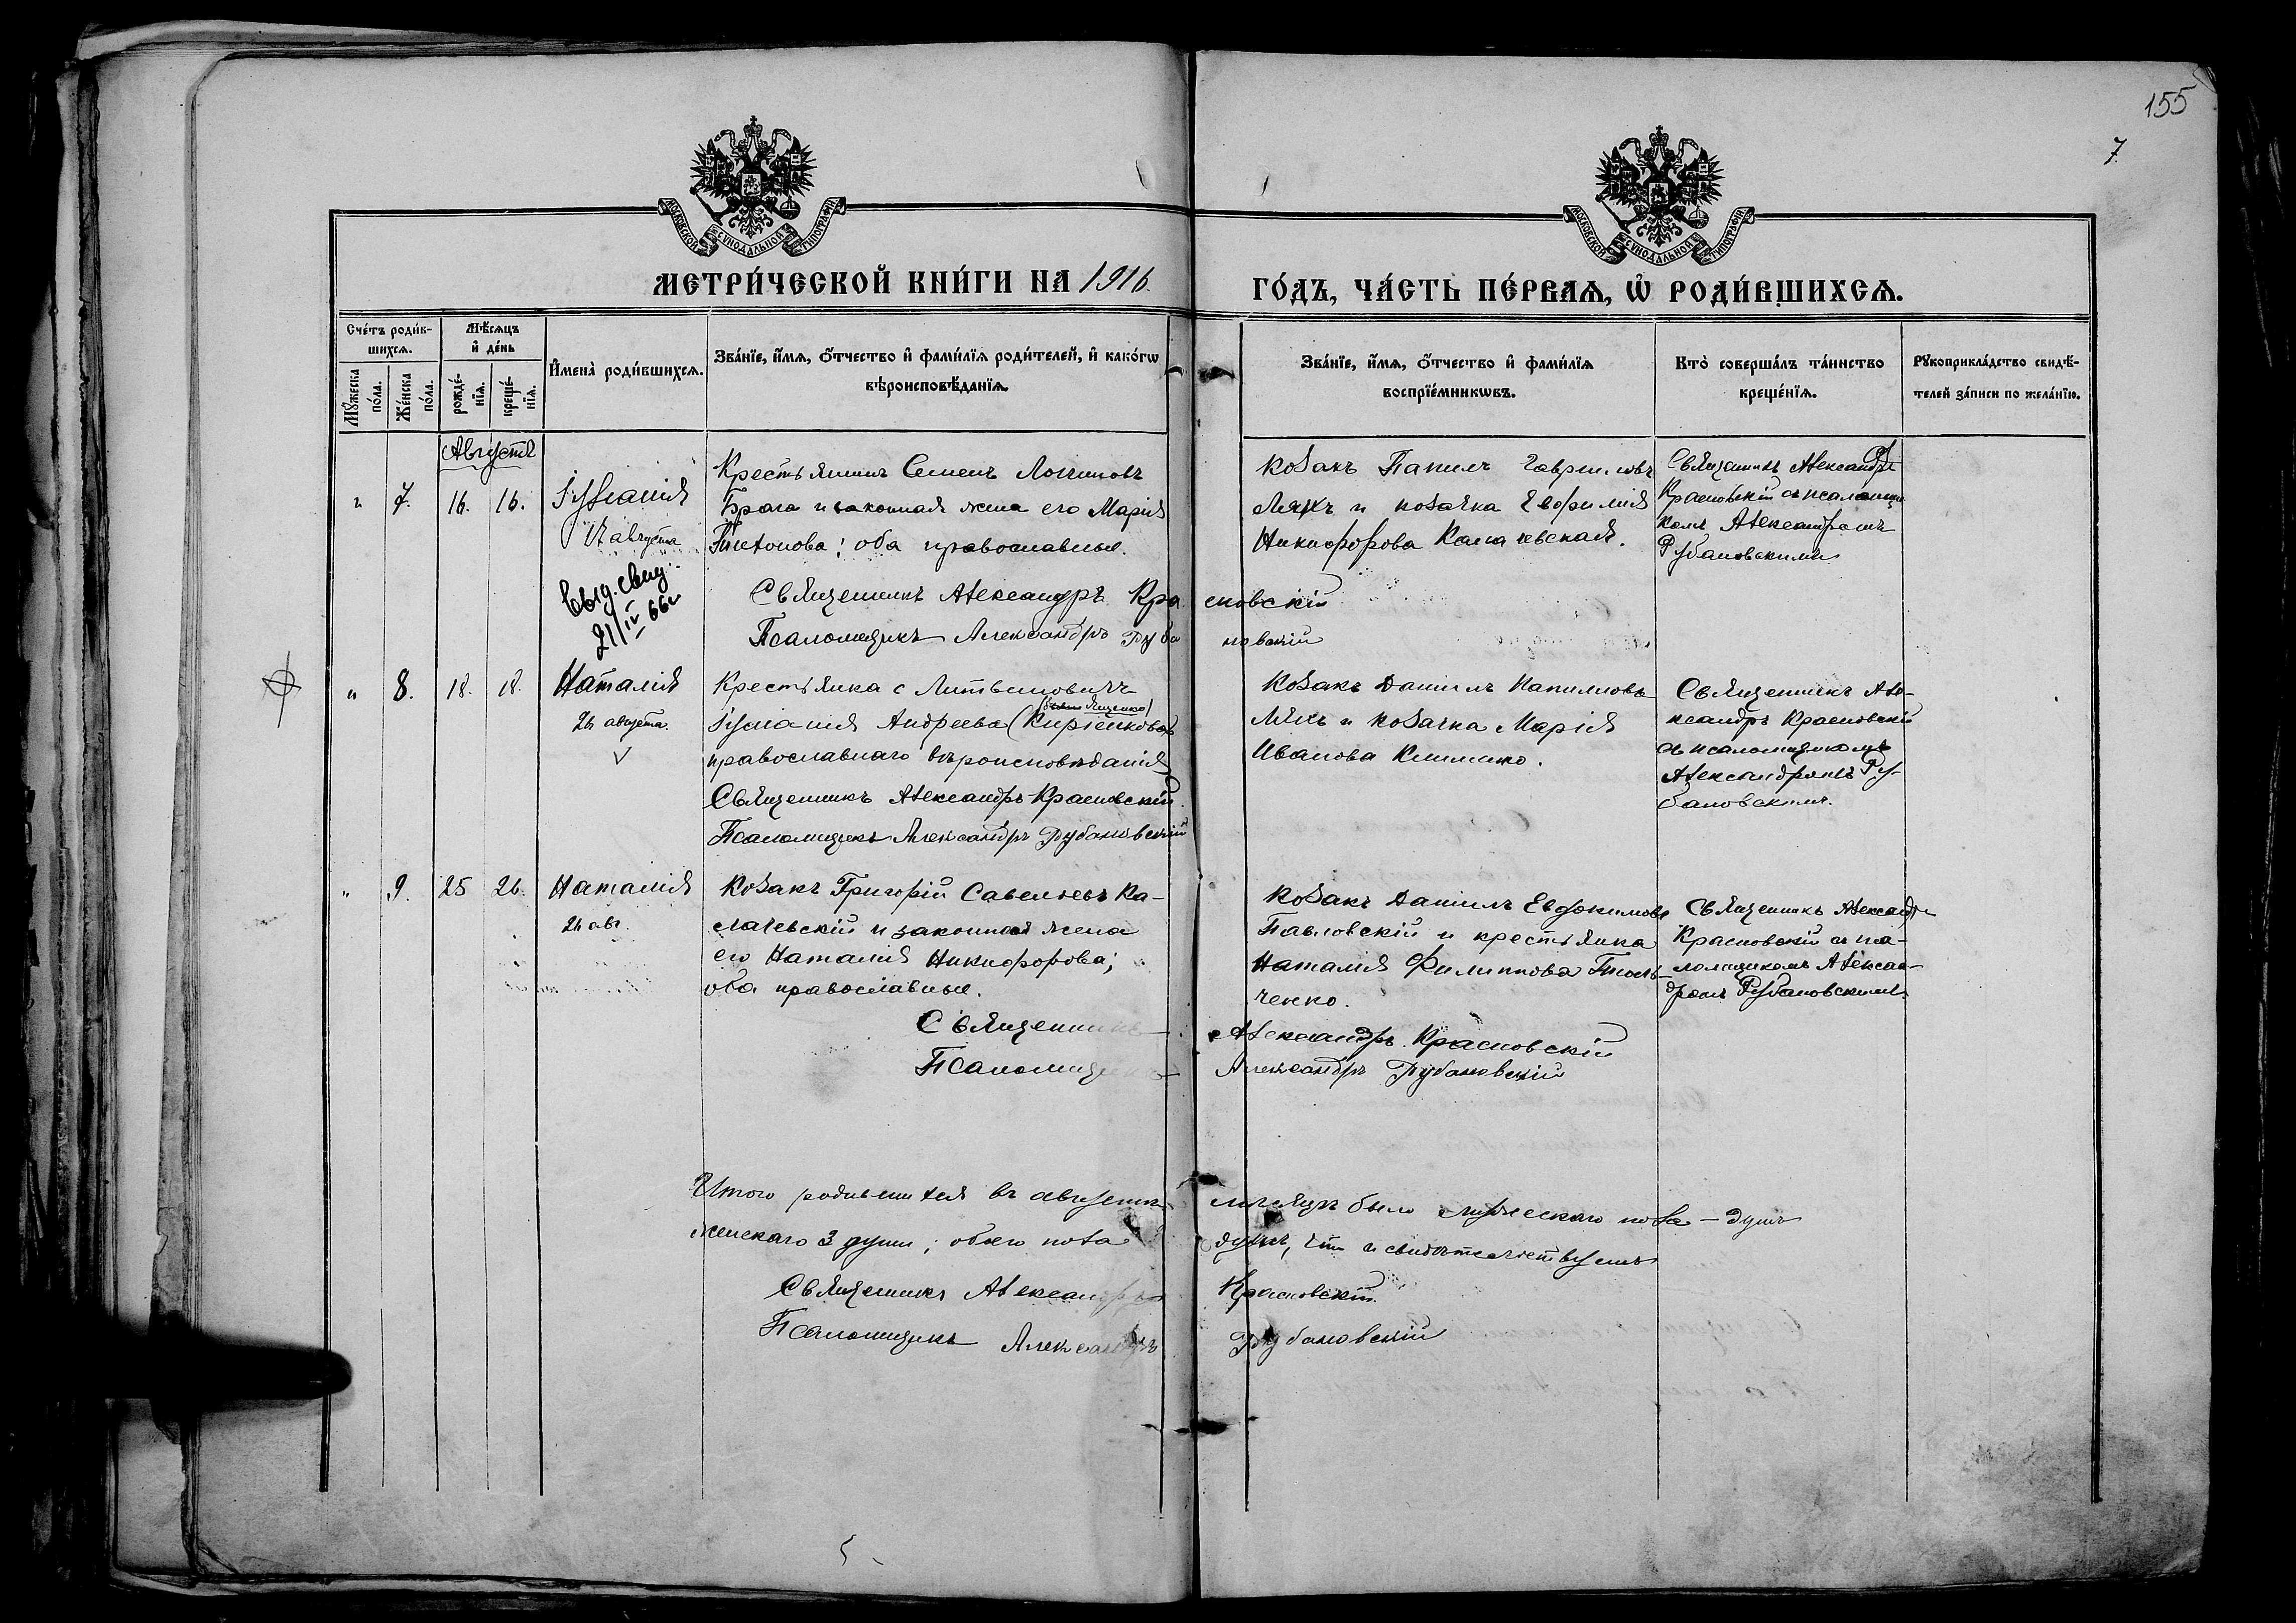 155
7
МОСКОВСКОЙ СУНОДАЛЬНОЙ ТИПОГРАФІИ
МОСКОВСКОЙ СУНОДАЛЬНОЙ ТИПОГРАФІИ
МЕТРИ́ЧЕСКОЙ КНИ́ГИ НА 1916
ГО́ДЪ, ЧА́СТЬ ПЕ́РВАЯ, Ѡ РОДИ́ВШИХСЯ.
Сче́тъ роди́в-
шихся.
Мꙋ́жеска по́ла.
Же́нска по́ла.
Мѣ́сяцъ
и҆ де́нь
рожде́-
нїя.
креще́-
нїя.
И҆мена̀ роди́вшихся.
Зва́нїе, и҆́мя, ѻ҆́тчество и҆ фами́лїя роди́телей, и҆ како́гѡ
вѣроисповѣ́данїя.
Зва́нїе, и҆́мя, ѻ҆́тчество и҆ фами́лїя
воспрїе́мникѡвъ.
Кто̀ соверша́лъ та́инство
креще́нїя.
Рꙋкоприкла́дство свидѣ́-
телей за́писи по жела́нїю.
Августъ
" 7. 16. 16.
Іуліанія
августа
Выд. свид.
21/IV 66г
Крестьянинъ Семенъ Логиновъ
Брага и законная жена его Марія
оба православные.
Священникъ Александръ Красновскій
Псаломщикъ Александръ Рубановскій
Козакъ Гавриловъ
Ляхъ и козачка Евфимія
Никифорова Калачевская.
Священникъ Александръ
Красновскій съ псаломщи
комъ Александромъ
Рубановскимъ
" 8. 18. 18.
Наталія
26 августа.
V
Крестьянка с Литвиновичъ
Яценко)
Іуліанія Андреева (Кирієнкова)
православнаго вѣроисповѣданія
Священникъ Александръ Красновскій.
Псаломщикъ Александръ Рубановскій
Козакъ Даніилъ
Ляхъ и козачка Марія
Иванова Клименко.
Священникъ Але-
ксандръ Красновскій
съ псаломщикомъ
Александромъ Ру-
бановскимъ.
" 9. 25 26.
Наталія
26 авг.
Козакъ Григорій Савельевъ Ка-
лачевскій и законная жена
его Наталія Никифорова;
оба православные.
Священникъ Александръ Красновскій
Псаломщикъ Александръ Рубановскій
Козакъ Даніилъ Евдокимовъ
Павловскій и крестьянка
Наталія Филиппова
ченко.
Священникъ Александръ
Красновскій съ пса-
ломщикомъ Алексан-
дромъ Рубановскимъ
Итого родившихся въ августѣ мѣсяцѣ было мужескаго пола – душъ
женскаго 3 души; обоего пола душъ, что и свидѣтельствуемъ
Священникъ Александръ Красновскій.
Псаломщикъ Александръ Рубановскій